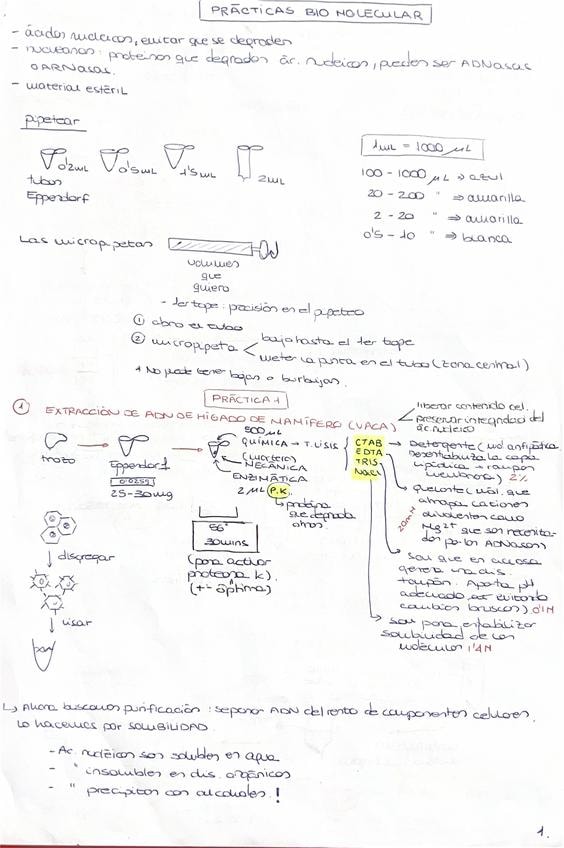 PRÁCTICAS BIO MOLECULAR
- ácidos nucleicos, evitar que se degraden
- nucleasas: proteínas que degradan ác. nucleicos, pueden ser ADNasas
o ARNasas.
- material estéril
pipetear
0'2mL
0'5mL
1'5mL
2mL
tubos
Eppendorf
1mL = 1000 μL
100 - 1000 μL ⇒ azul
20 - 200 " ⇒ amarilla
2 - 20 " ⇒ amarilla
0'5 - 10 " ⇒ blanca
Las micropipetas
volumen
que
quiero
- 1er tope: precisión en el pipeteo
① abro el tubo
② micropipeta
bajo hasta el 1er tope
meter la punta en el tubo (zona central)
* No puede tener bajas o burbujas.
PRÁCTICA 1
① EXTRACCIÓN DE ADN DE HÍGADO DE MAMÍFERO (VACA)
liberar contenido cel.
preservar integridad del
ác. nucleico
trozo
Eppendorf
0.025g
25-30mg
500μL
QUÍMICA → T. LISIS
(mortero)
MECÁNICA
ENZIMÁTICA
2 μL P.K.
proteína
que degrada
otras
56°
30 mins
(para activar
proteasa K).
(+- óptima)
CTAB
EDTA
TRIS
NaCl
Detergente (mol anfipática
desestabiliza la capa
lipídica → rompen
membranas) 2%
Quelante (mol. que
atrapa cationes
divalentes como
Mg2+ que son necesita-
dos por las ADNasas)
20mM
Sal que en acuosa
genera una dis.
tampón. Aporta pH
adecuado, evitando
cambios bruscos) 0'1M
sal para estabilizar
solubilidad de las
moléculas 1'4M
disgregar
lisar
↳ Ahora buscamos purificación: separar ADN del resto de componentes celulares.
Lo hacemos por SOLUBILIDAD.
- Ac. nucléicos son solubles en agua
- " insolubles en dis. orgánicos
- " precipitan con alcoholes!
1.